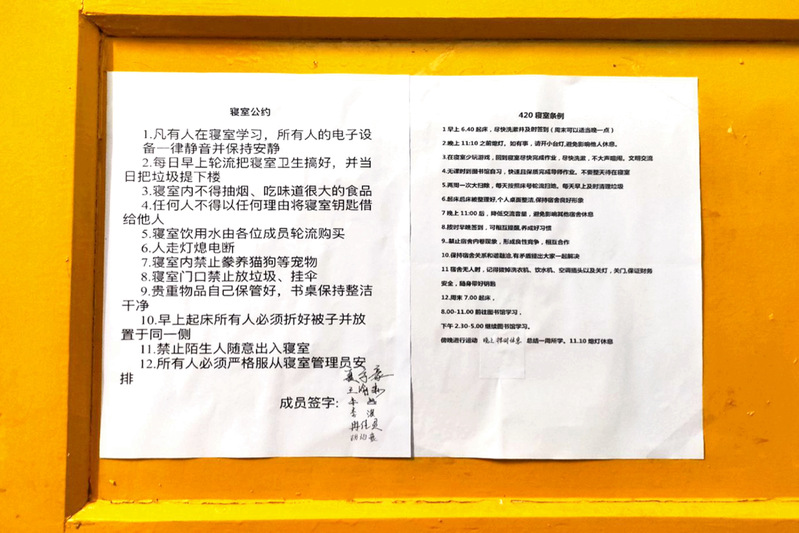 寝室公约
1.凡有人在寝室学习，所有人的电子设
备一律静音并保持安静
2.每日早上轮流把寝室卫生搞好，并当
日把垃圾提下楼
3.寝室内不得抽烟、吃味道很大的食品
4.任何人不得以任何理由将寝室钥匙借
给他人
5.寝室饮用水由各位成员轮流购买
6.人走灯熄电断
7.寝室内禁止豢养猫狗等宠物
8.寝室门口禁止放垃圾、挂伞
9.贵重物品自己保管好，书桌保持整洁
干净
10.早上起床所有人必须折好被子并放
置于同一侧
11.禁止陌生人随意出入寝室
12.所有人必须严格服从寝室管理员安
排
成员签字:
420 寝室条例
1 早上 6.40 起床，尽快洗漱并及时签到（周末可以适当晚一点）
2.晚上 11:10 之前熄灯，如有事，请开小台灯,避免影响他人休息。
3.在寝室少玩游戏，回到寝室尽快完成作业，尽快洗漱，不大声喧闹。文明交流
4.无课时到图书馆自习，快速且保质完成导师作业。不要整天待在寝室
5.两周一次大扫除，每天按照床号轮流扫地。每天早上及时清理垃圾
6.起床后床被整理好,个人桌面整洁,保持宿舍良好形象
7 晚上 11:00 后，降低交流音量，避免影响其他宿舍休息
8.按时早晚签到，可相互提醒,养成好习惯
9..禁止宿舍内卷现象，形成良性竞争，相互合作
10.保持宿舍关系和谐融洽,有矛盾提出大家一起解决
11 宿舍无人时，记得拔掉洗衣机、饮水机、空调插头以及关灯，关门,保证财务
安全，随身带好钥匙
12.周末 7.00 起床，
8.00-11.00 前往图书馆学习，
下午 2.30-5.00 继续图书馆学习。
傍晚进行运动 晚上 休息 总结一周所学。11.10 熄灯休息